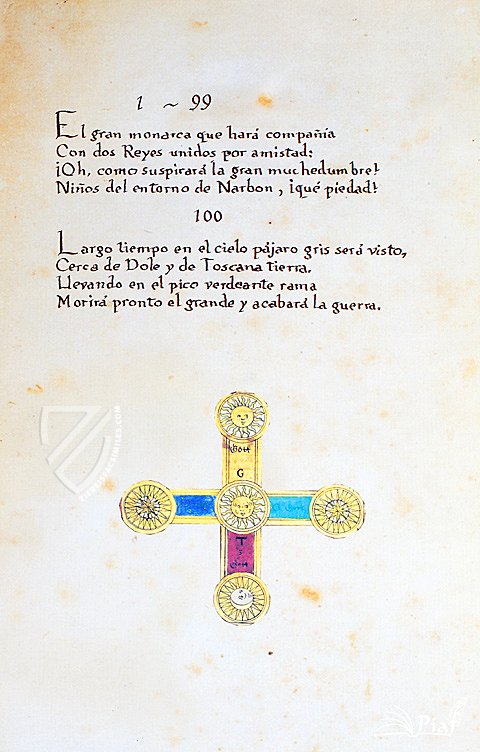 1 ~ 99
El gran monarca que hará compañia
Con dos Reyes unidos por amistad:
¡Oh, como suspirará la gran muchedumbre!
Niños del entorno de Narbon, ¡qué piedad!
100
Largo tiempo en el cielo pájaro gris será visto,
Cerca de Dole y de Toscana tierra.
Llevando en el pico verdeante rama
Morirá pronto el grande y acabará la guerra.
G
T
Piaf